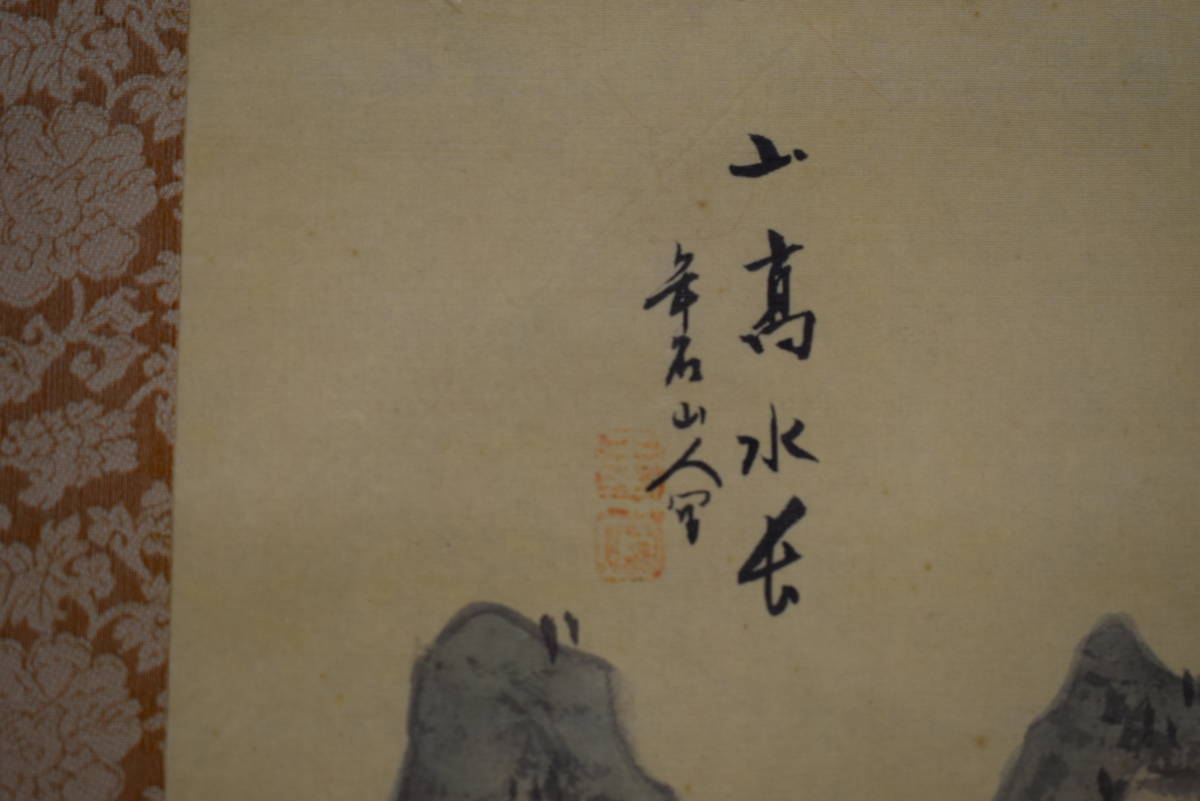 山高水長
年石山人写